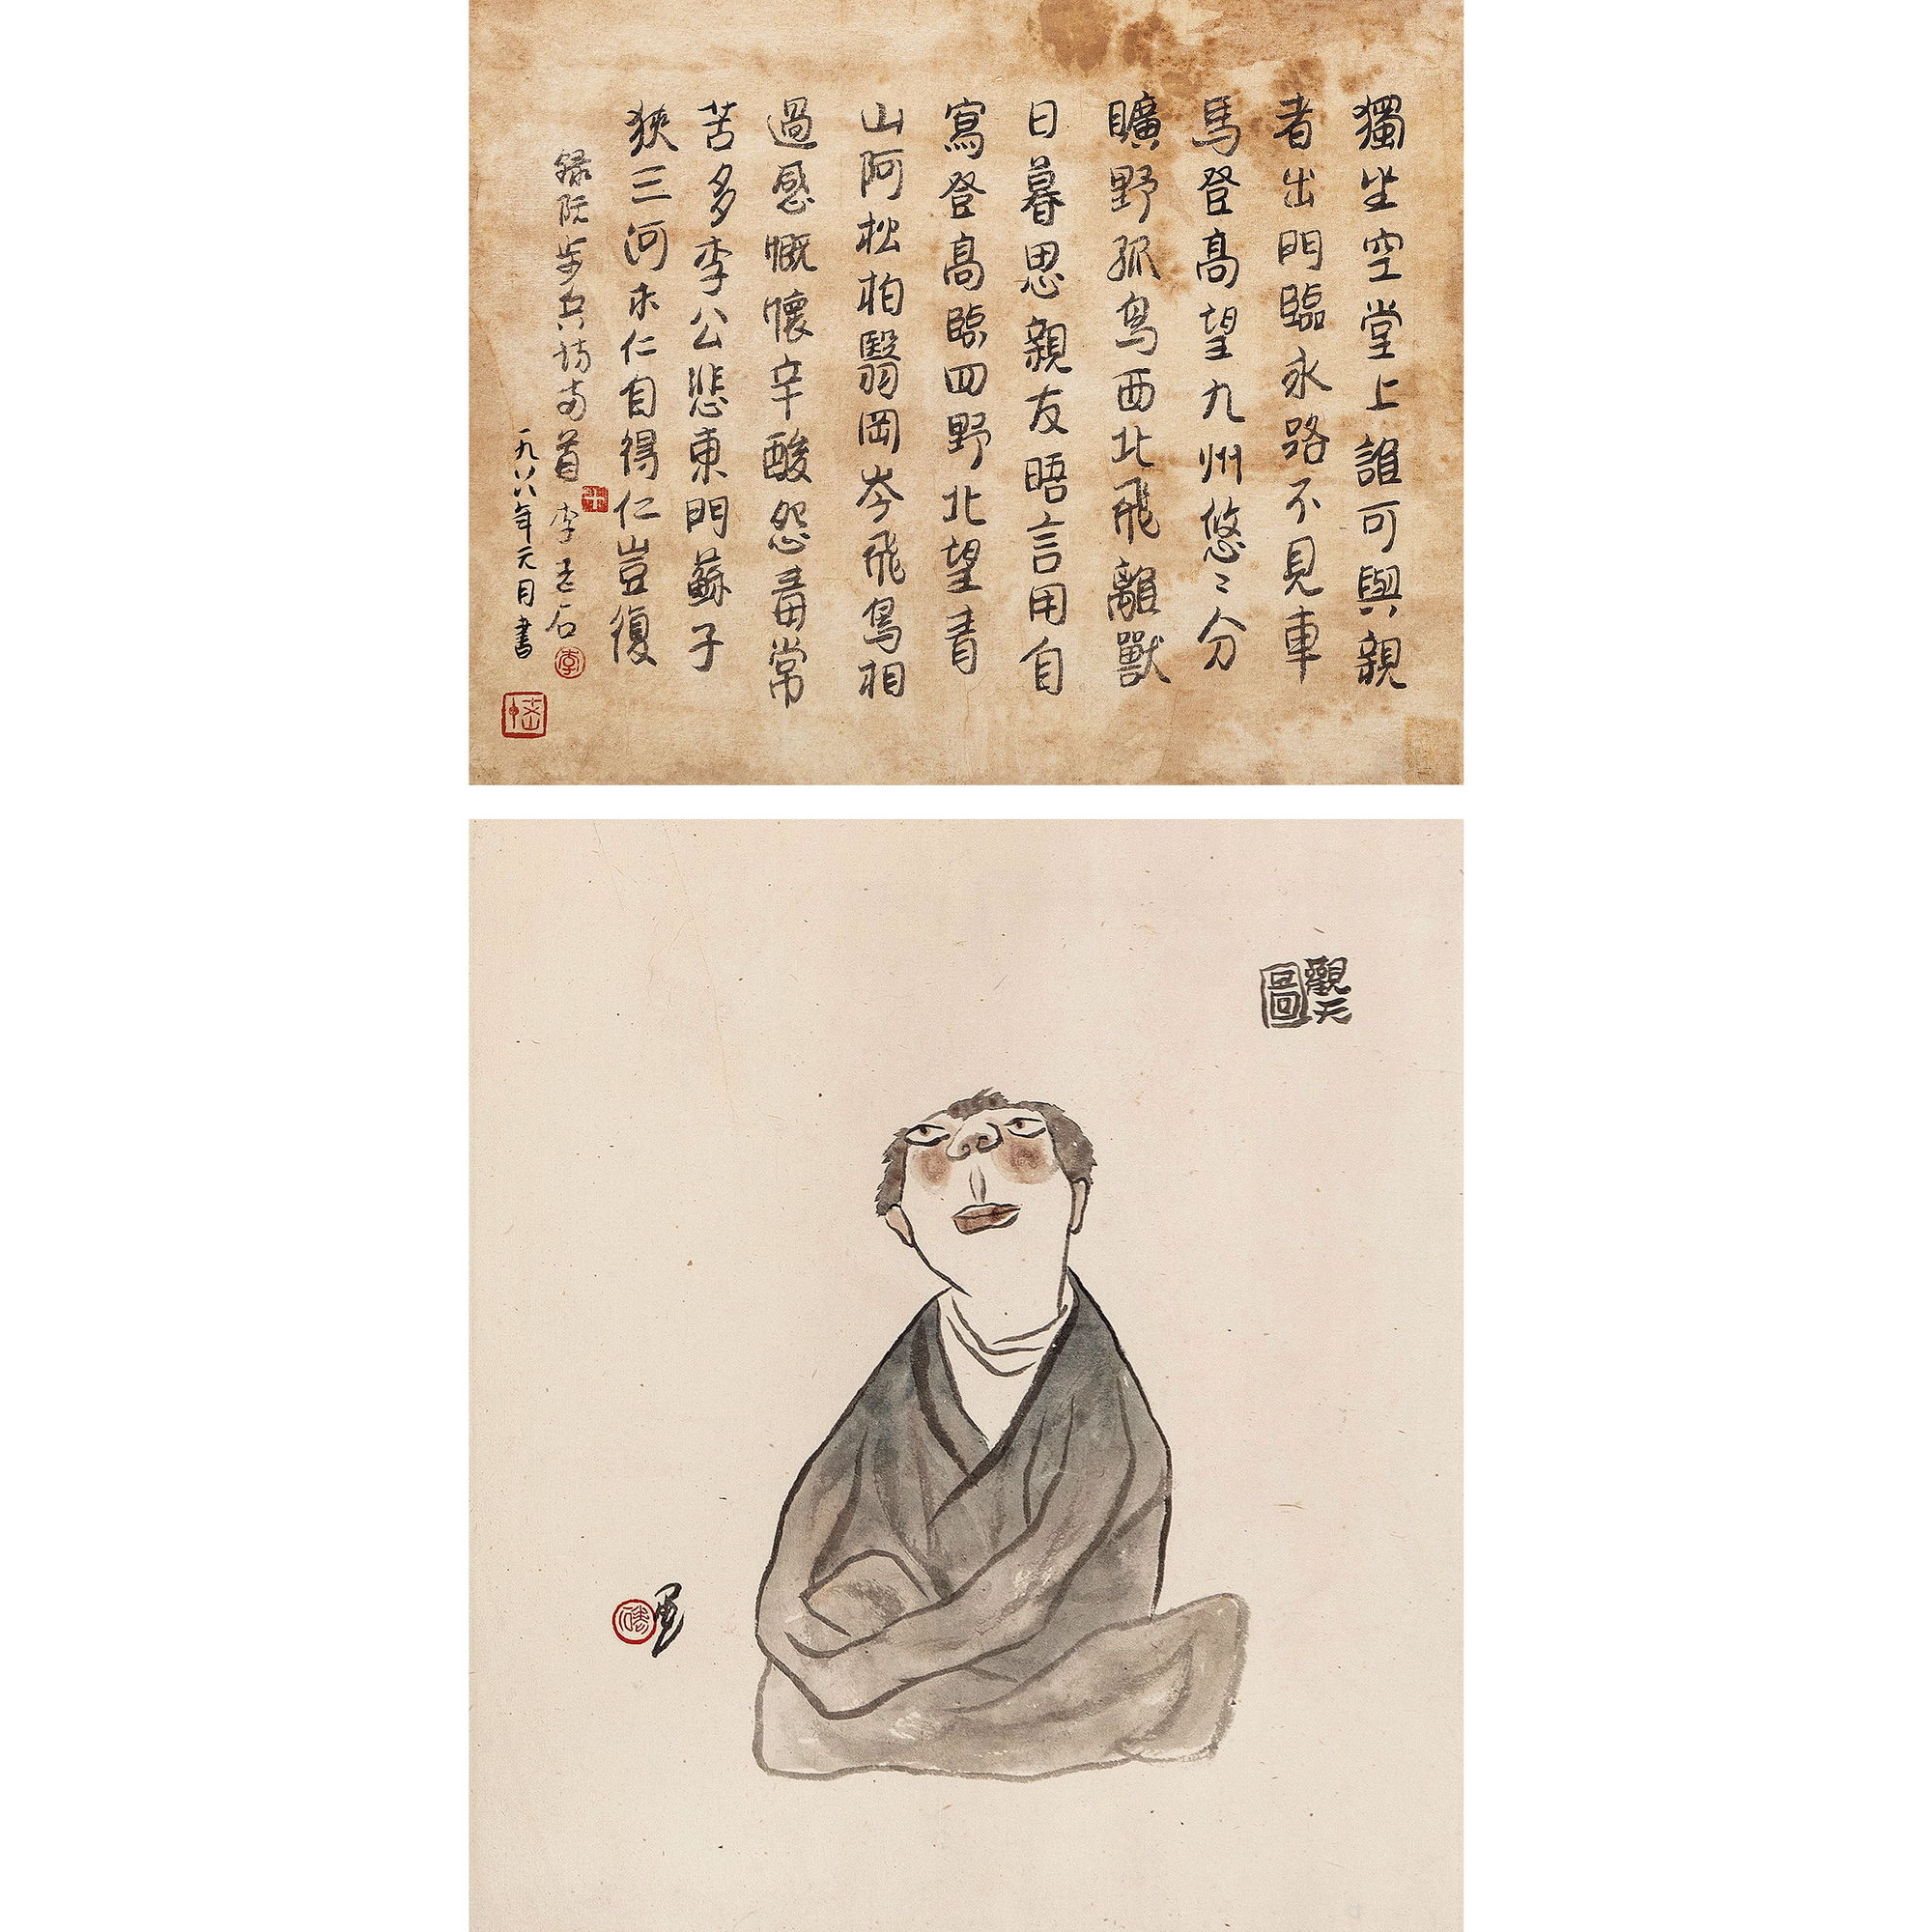 獨坐空堂上誰可與親
者出門臨永路不見車
馬登高望九州悠〻分
曠野孤鳥西北飛離獸
日暮思親友晤言用自
寫登高臨四野北望青
山阿松柏翳岡岑飛鳥相
過感慨懷辛酸怨毒常
苦多李公悲東門蘇子
狹三河求仁自得仁豈復
錄阮步兵詩兩首 李老石
一九八八年元月書
李
觀天
圖